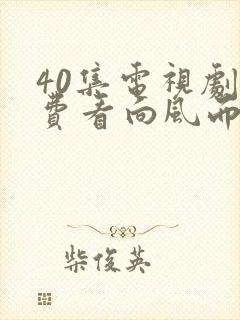 40集電視劇
費看向風而
柴俊英